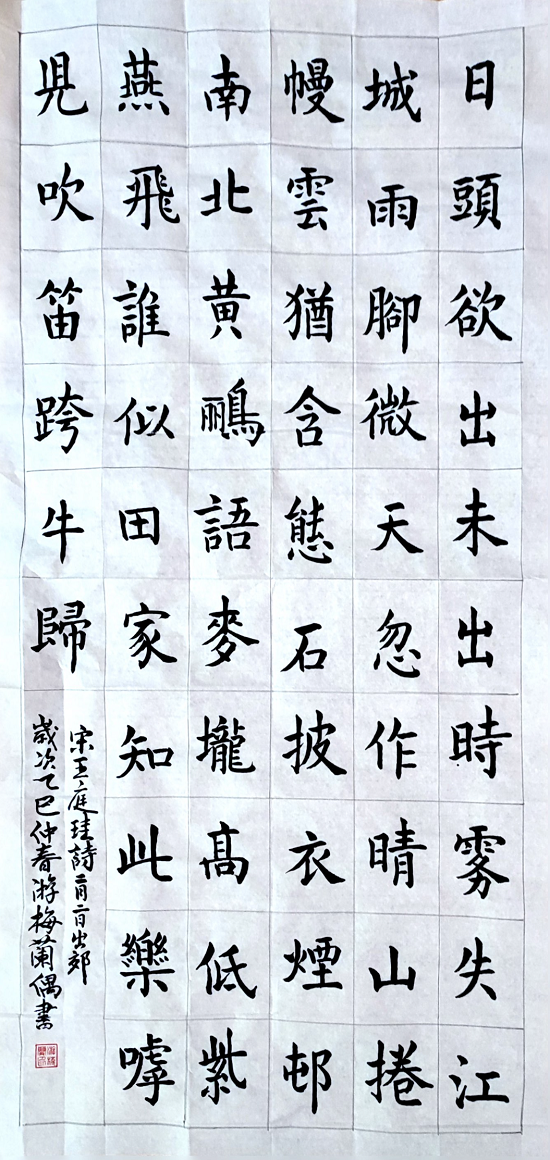 日頭欲出未出時雾失江
城雨腳微天忽作晴山捲
幔雲猶含態石披衣煙邨
南北黄鸝語麥壠高低紫
燕飛誰似田家知此樂嘑
児吹笛跨牛歸
宋王庭珪詩二月二日出郊
歲次乙巳仲春游梅蘭偶書